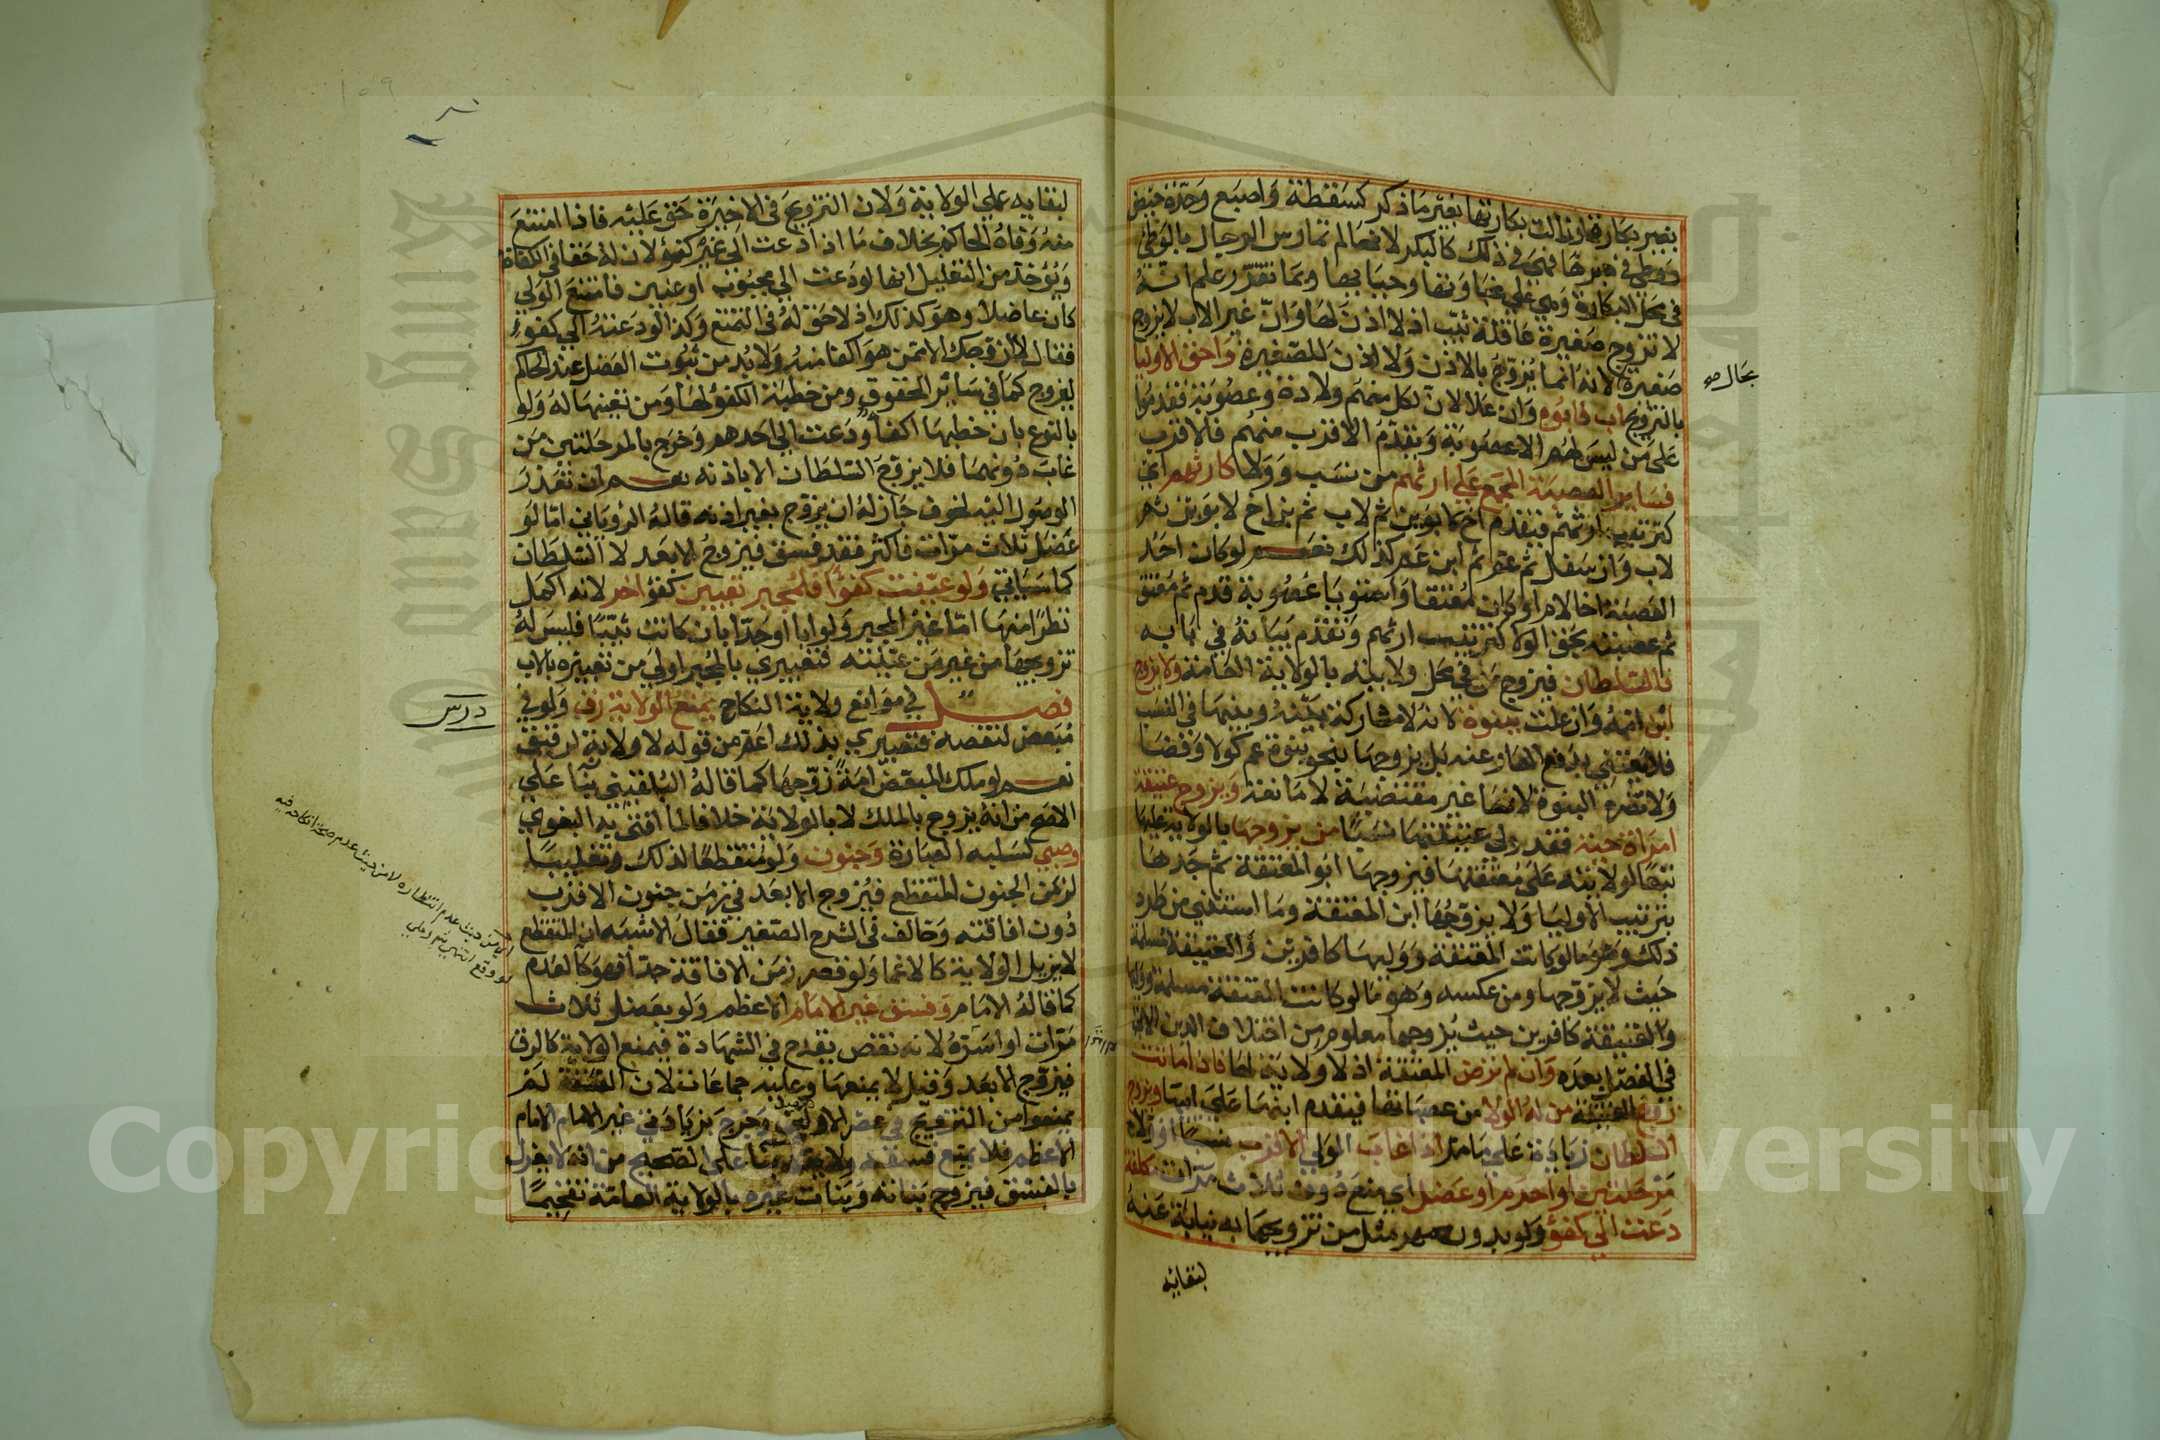 بغير بكارة فان زالت بكارتها بغير ما ذكر كسقطة واصبع وحدة حيض
ووطئ في دبرها فهي في ذلك كالبكر لانها لم تمارس الرجال بالوطئ
في محل البكارة وهي على غباوتها وحيائها وبما تقرر علم انه
لا تزوج صغيرة عاقلة ثيب اذ لا اذن لها وان غير الاب لا يزوج
صغيرة لانه انما يزوج بالاذن ولا اذن للصغيرة واحق الاوليا
بحال صح
بالتزويج اب فابوه وان علا لان لكل منهم ولادة وعصوبة فقدموا
على من ليس لهم الا عصوبة ويقدم الاقرب منهم فالاقرب
فسائر العصبة المجمع على ارثهم من نسب وولا كارثهم اي
كترتيب ارثهم فيقدم اخ لابوين ثم لاب ثم بن اخ لابوين ثم
لاب وان سفل ثم عم ثم ابن عم كذلك نعم لو كان احد
العصبة اخا لام او كان معتقا واستويا عصوبة قدم ثم معتق
ثم عصبته بحق الولا كترتيب ارثهم وتقدم بيانه في بابه
فالسلطان فيزوج من في محل ولايته بالولاية العامة ولا يزوج
ابن امه وان علت ببنوة لانه لا مشاركة بينه وبينها في النسب
فلا يعتني بدفع العار عنه بل يزوجها بنحو بنوة عم كولا وقضا
ولا تضره البنوة لانها غير مقتضية لا مانعة ويزوج عتيقة
امراة حية فقد ولي عتيقتها نسبا من يزوجها بالولاية عليها
تبعا لولايته على معتقها فيزوجها ابو المعتقة ثم جدها
بترتيب الاوليا ولا يزوجها ابن المعتقة وما استثني من طرد
ذلك وهو ما لو كانت المعتقة ووليها كافرين والعتيقة مسلمة
حيث لا يزوجها ومن عكسه وهو ما لو كانت المعتقة مسلمة ووليها
والعتيقة كافرين حيث يزوجها معلوم من اختلاف الدين الاتي
في الفصل بعده وان لم ترض المعتقة اذ لا ولاية لها فاذا ماتت
زوج العتيقة من له الولا من عصباتها فيقدم ابنها على ابيها ويزوج
السلطان زيادة على ما مر اذا غاب الولي الاقرب نسبا او ولاء
مرحلتين او احرم او عضل اي منع دون ثلاث مرات مكلفة
دعت الى كفؤ ولو بدون مهر مثل من تزويجها به نيابة عنه
لبقائه
لبقايه على الولاية ولان التزويج في الاخيرة حق عليه فاذا امتنع
منه وفاه الحاكم بخلاف ما اذا دعت الى غير كفؤ لان له حقا في الكفاة
ويؤخذ من التعليل انها لو دعت الى مجبوب او عنين فامتنع الولي
كان عاضلا وهو كذلك اذ لا حق له في التمتع وكذا لو دعته الى كفوء
فقال لا ازوجك الا ممن هو اكفا منه ولا بد من ثبوت العضل عند الحاكم
ليزوج كما في سائر الحقوق ومن خطبة الكفؤ لها ومن تعينها له ولو
بالنوع بان خطبها اكفأ ودعت الى احدهم وخرج بالمرحلتين من
غاب دونهما فلا يزوج السلطان الا باذنه نعم ان تعذر
الوصول اليه لخوف جاز له ان يزوج بغير اذنه قاله الروياني اما لو
عضل ثلاث مرات فاكثر فقد فسق فيزوج الابعد لا السلطان
كما سياتي ولو عينت كفؤا فللمجبر تعيين كفؤ اخر لانه اكمل
نظرا منها اما غير المجبر ولو ابا او جدا بان كانت ثيبا فليس له
تزويجها من غير من عينته فتعبيري بالمجبر اولى من تعبيره بالاب
فصل في موانع ولاية النكاح يمنع الولاية رق ولو في
درس
مبعض لنقصه فتعبيري بذلك اعم من قوله لا ولاية لرقيق
نعم لو ملك المبعض امة زوجها كما قاله البلقيني بنا على
الاصح من انه يزوج بالملك لا بالولاية خلافا لما افتى به البغوي
وصبي لسلبه العبارة وجنون ولو متقطعا لذلك وتغليبا
لزمن الجنون المتقطع فيزوج الابعد في زمن جنون الاقرب
دون افاقته وخالف في الشرح الصغير فقال الاشبه ان المتقطع
لا يزيل الولاية كالاغما ولو قصر زمن الافاقة جدا فهو كالعدم
كما قاله الامام وفسق غير الامام الاعظم ولو بعضل ثلاث
مرات او اسره لانه نقص يقدح في الشهادة فيمنع الولاية كالرق
فيزوج الابعد وقيل لا يمنعها وعليه جماعات لان الفسقة لم
يمنعوا من التزويج في عصر الاولين وخرج بزيادتي غير الامام الامام
الاعظم فلا يمنع فسقه ولايته بنا على الصحيح من انه لا ينعزل
بالفسق فيزوج بناته وبنات غيره بالولاية العامة تفخيما